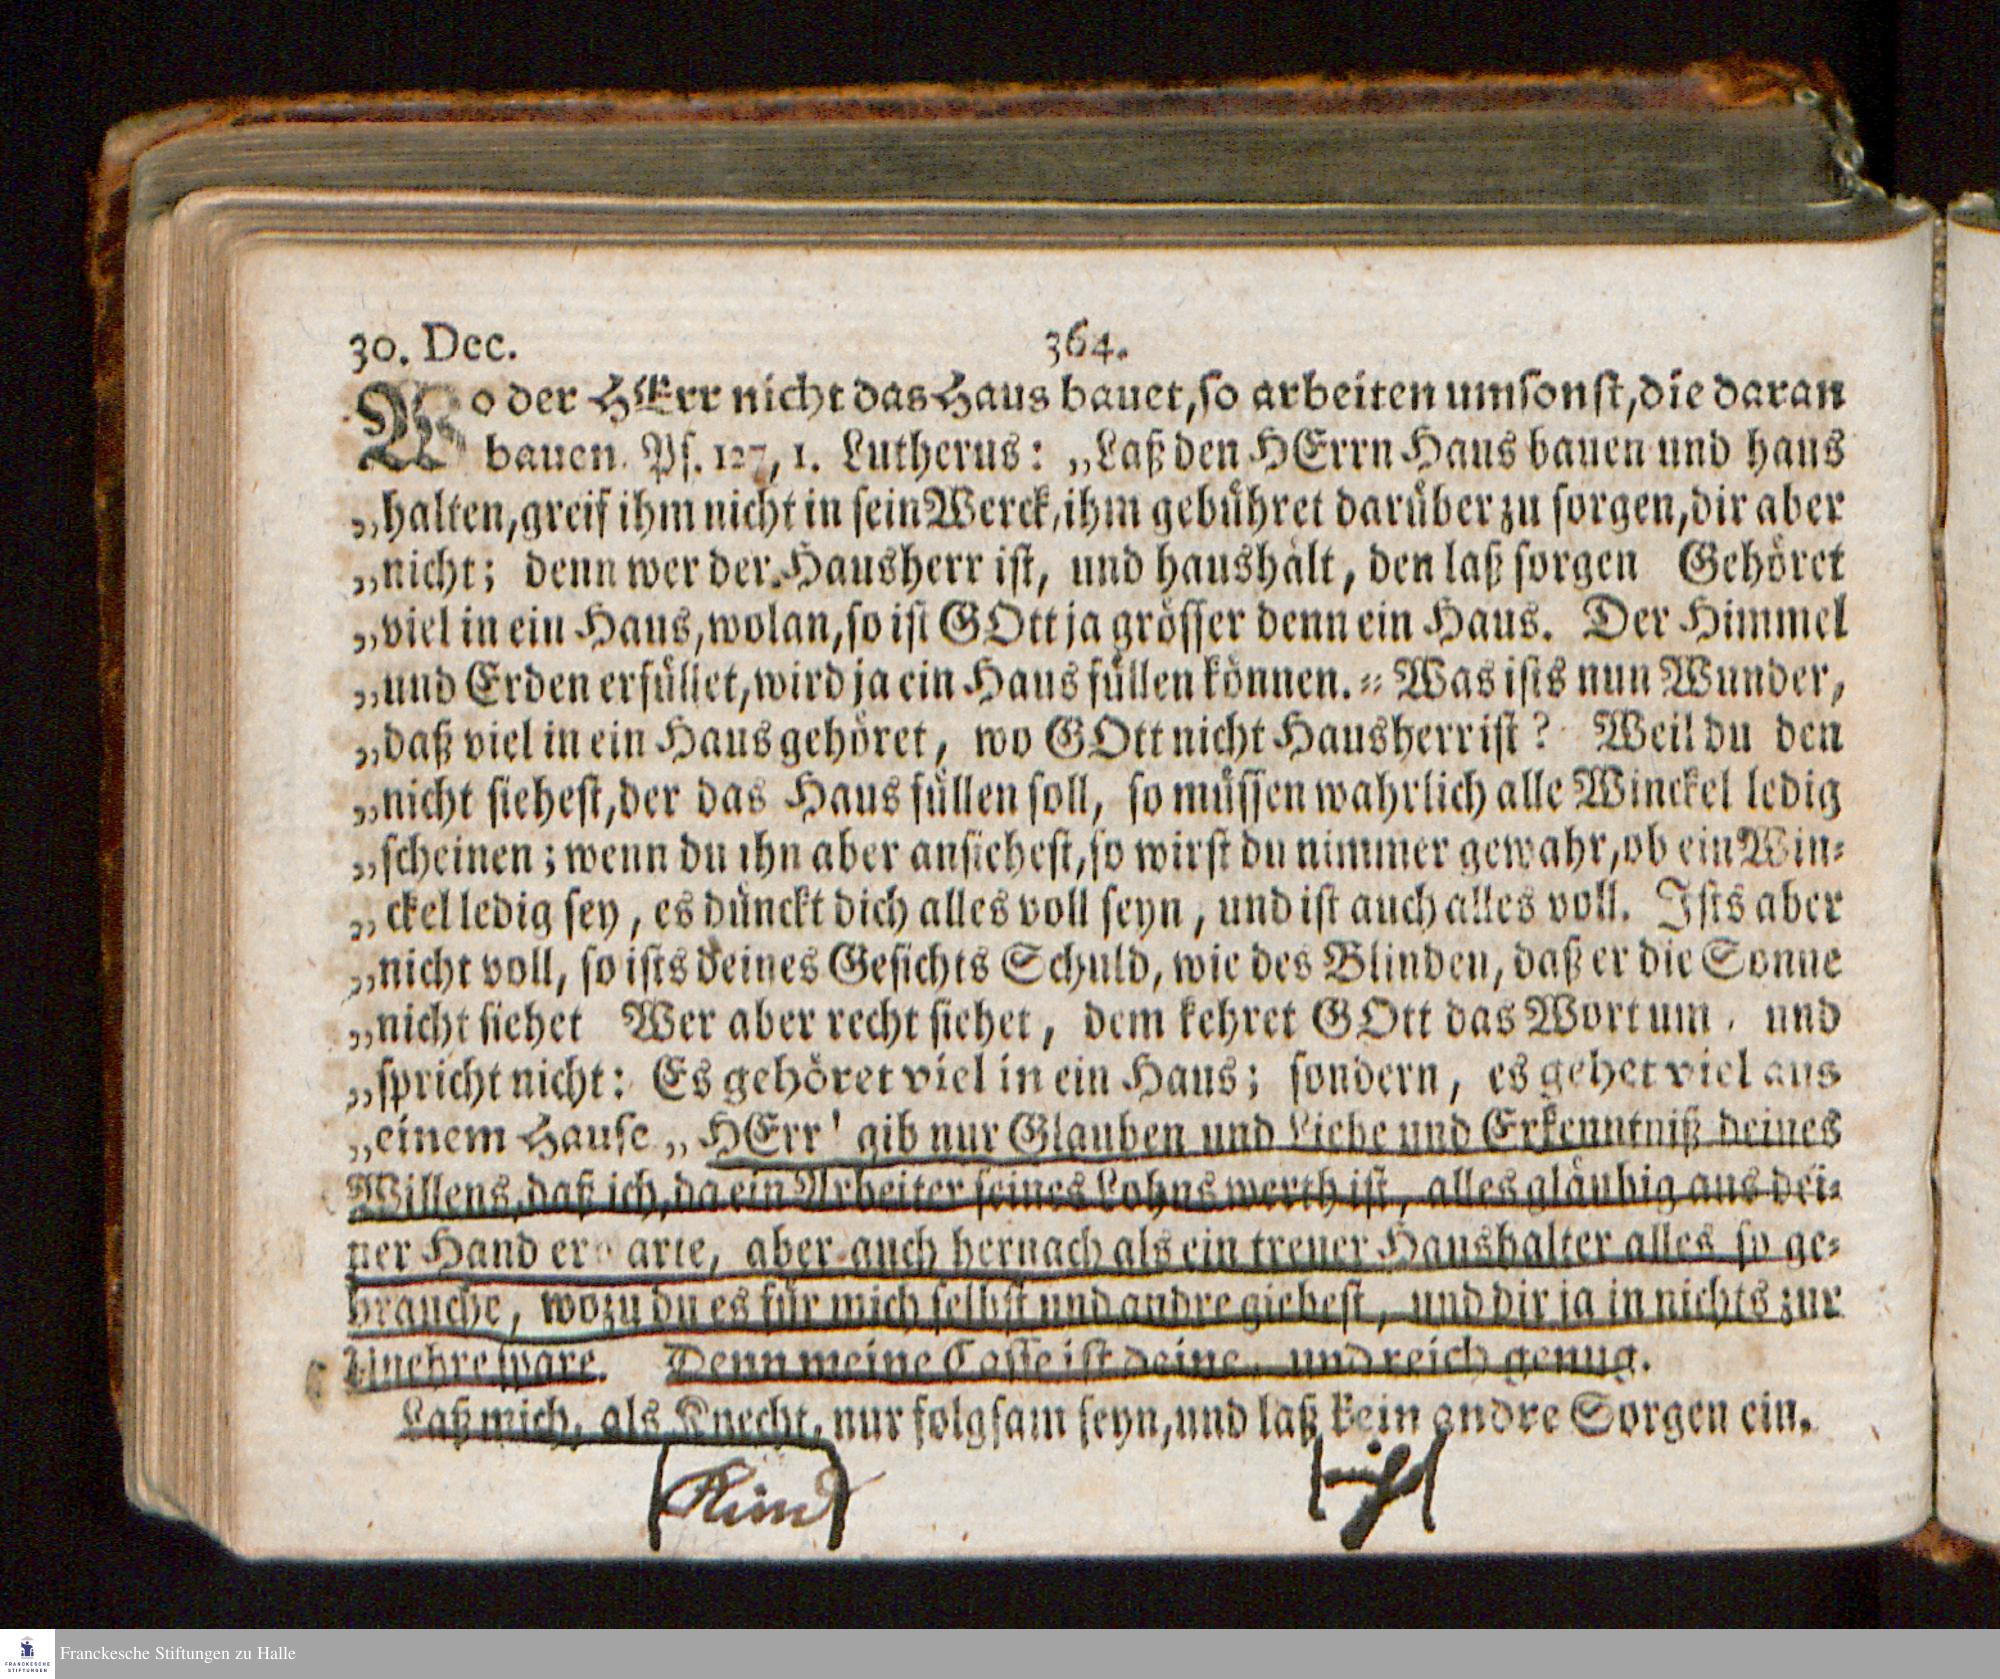 30. Dec. 364.
Wo der HErr nicht das Haus bauet, so arbeiten umsonst, die daran
bauen. Ps. 127, 1. Lutherus: „Laß den HErrn Haus bauen und haus
„halten, greif ihm nicht in sein Werck, ihm gebühret darüber zu sorgen, dir aber
„nicht; denn wer der Hausherr ist, und haushält, den laß sorgen Gehöret
„viel in ein Haus, wolan, so ist GOtt ja grösser denn ein Haus. Der Himmel
„und Erden erfüllet, wird ja ein Haus füllen können. = Was ists nun Wunder,
„daß viel in ein Haus gehöret, wo GOtt nicht Hausherr ist? Weil du den
„nicht siehest, der das Haus füllen soll, so müssen wahrlich alle Winckel ledig
„scheinen; wenn du ihn aber ansiehest, so wirst du nimmer gewahr, ob ein Win=
„ckel ledig sey, es dünckt dich alles voll seyn, und ist auch alles voll. Ists aber
„nicht voll, so ists deines Gesichts Schuld, wie des Blinden, daß er die Sonne
„nicht siehet Wer aber recht siehet, dem kehret GOtt das Wort um, und
„spricht nicht: Es gehöret viel in ein Haus; sondern, es gehet viel aus
„einem Hause „ HErr! gib nur Glauben und Liebe und Erkenntniß deines
Willens, daß ich, da ein Arbeiter seines Lohns werth ist, alles gläubig aus dei=
ner Hand erwarte, aber auch hernach als ein treuer Haushalter alles so ge=
brauche, wozu du es für mich selbst und andre giebest, und dir ja in nichts zur
Unehre spare. Denn meine Casse ist deine, und reich genug.
Laß mich, als Knecht, nur folgsam seyn, und laß kein andre Sorgen ein.
Kind
Franckesche Stiftungen zu Halle
FRANCKESCHE
STIFTUNGEN